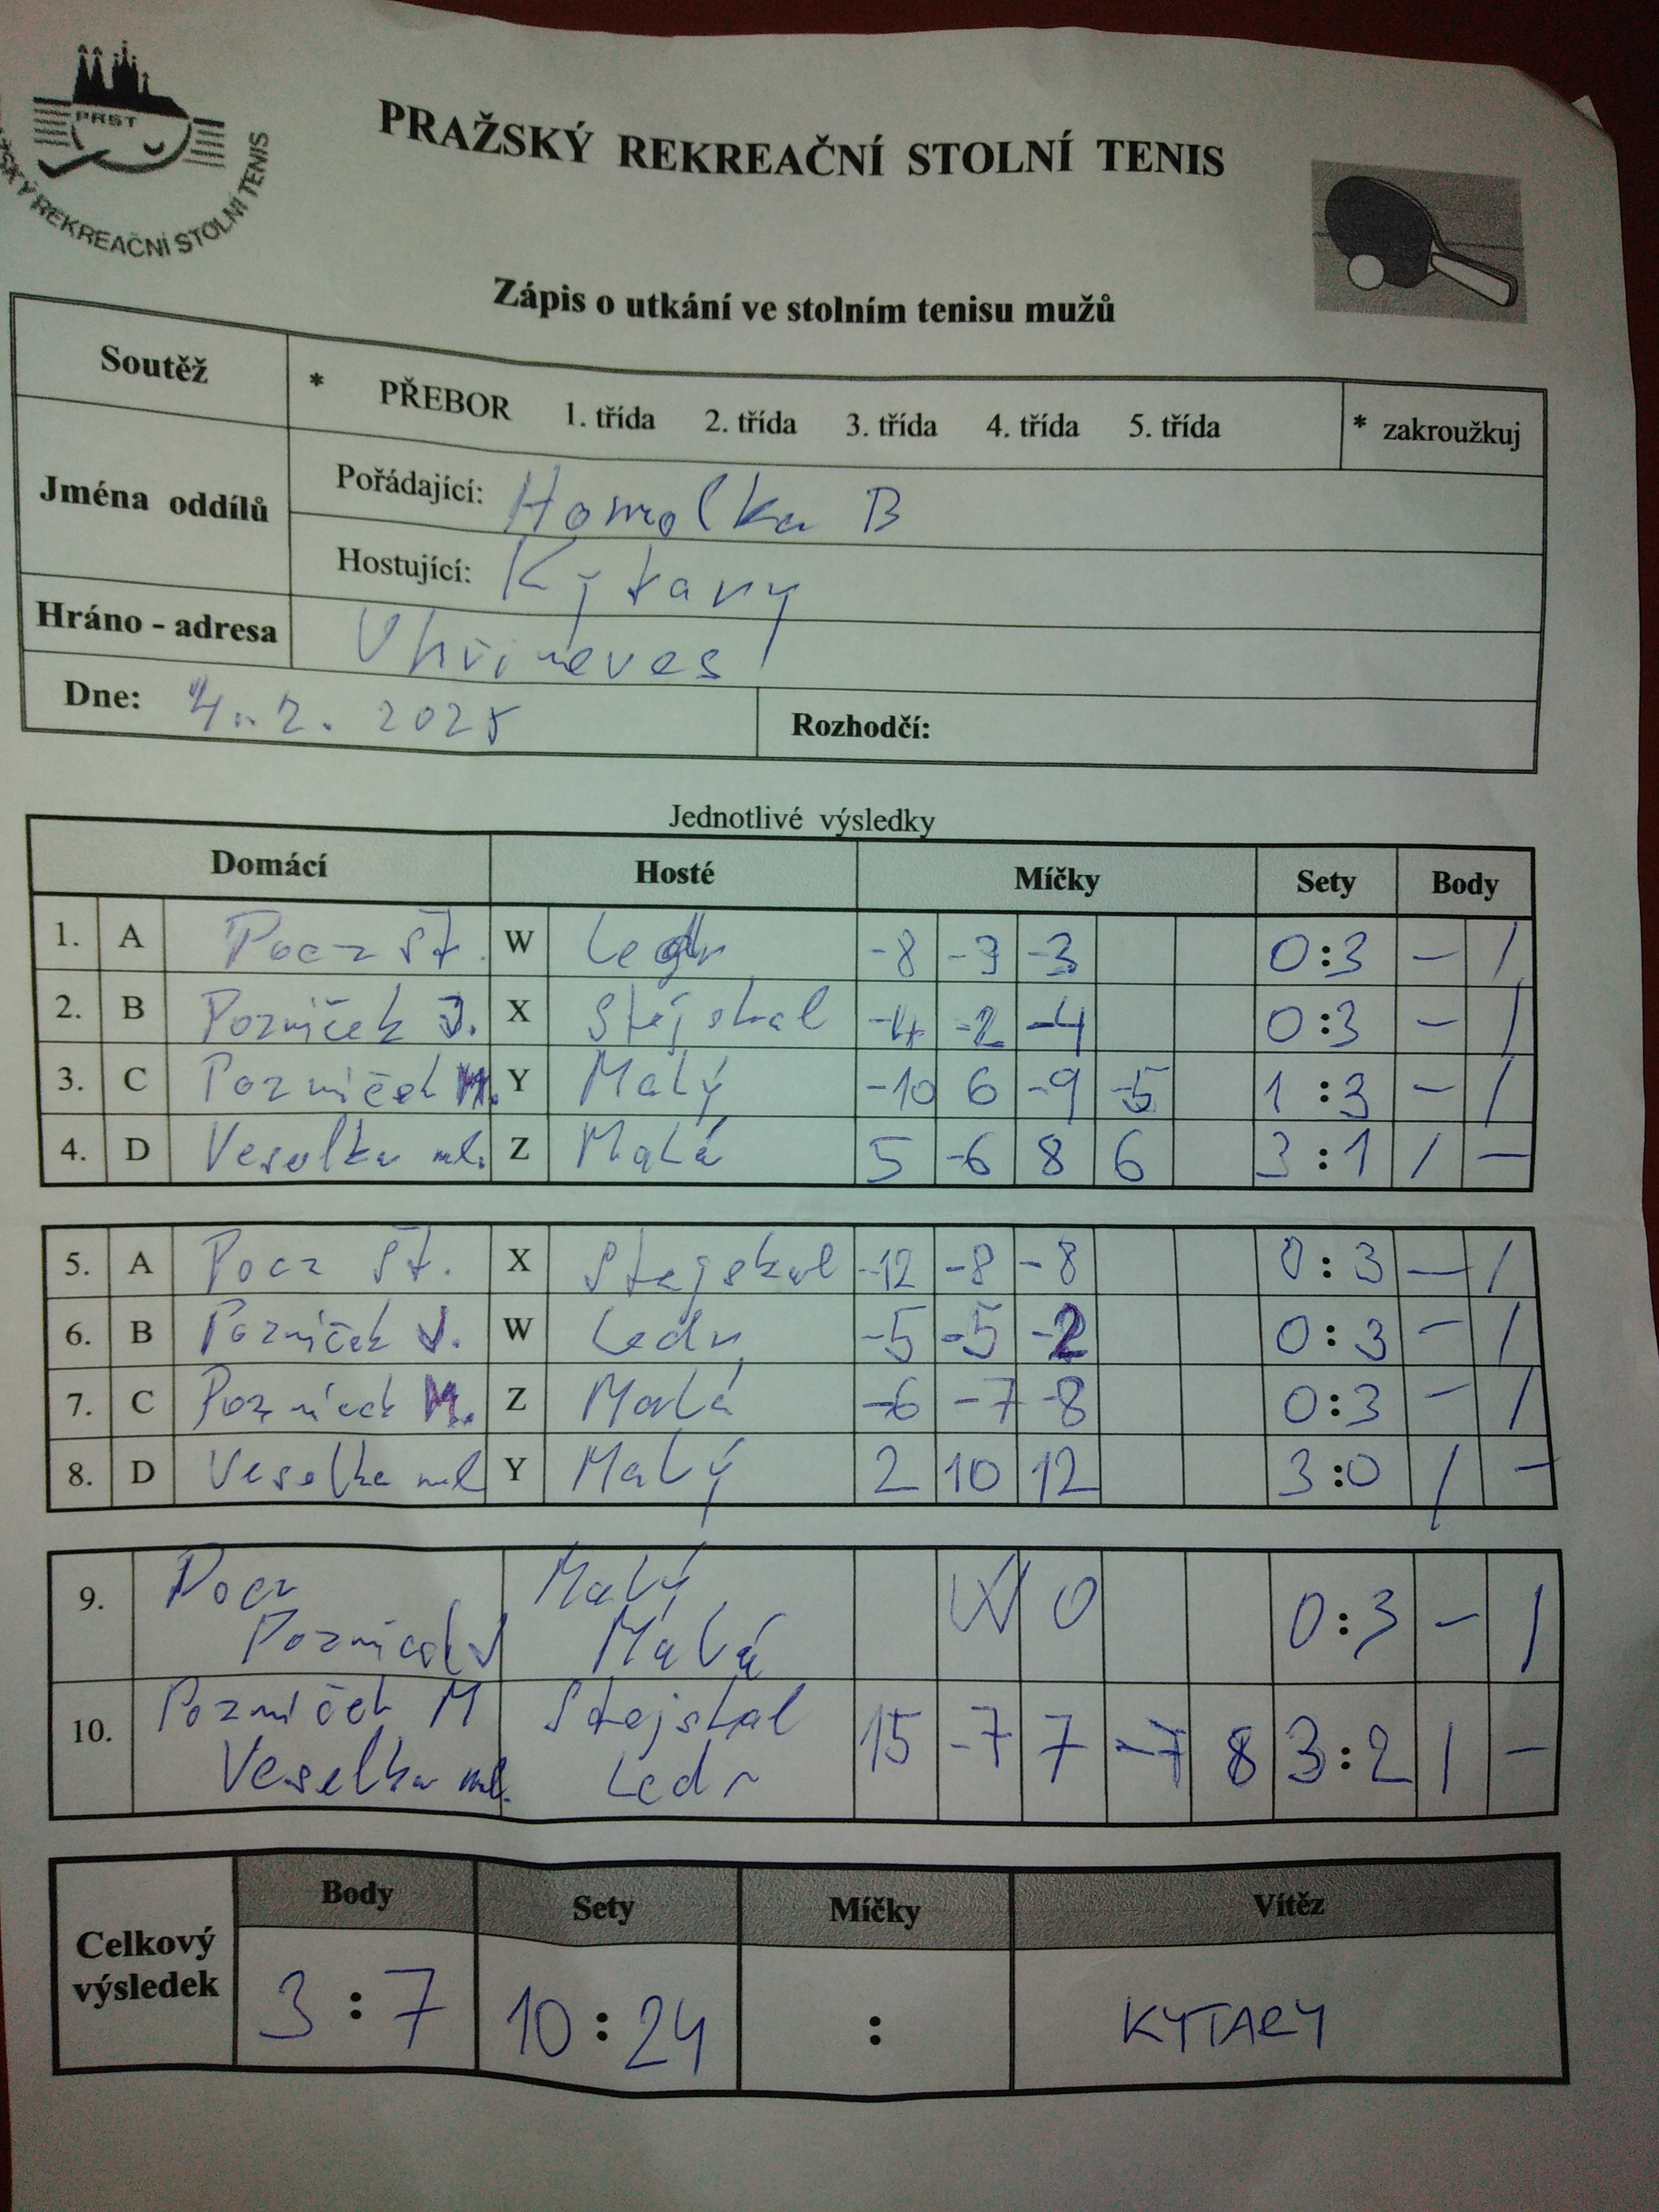 PRST
PRAŽSKÝ REKREAČNÍ STOLNÍ TENIS
ŽSKÝ REKREAČNÍ STOLNÍ TENIS
Zápis o utkání ve stolním tenisu mužů
Soutěž * PŘEBOR 1. třída 2. třída 3. třída 4. třída 5. třída * zakroužkuj
Jména oddílů
Pořádající: Homolka B
Hostující: Kytary
Hráno - adresa Uhříněves
Dne: 4. 2. 2025 Rozhodčí:
Jednotlivé výsledky
Domácí Hosté Míčky Sety Body
1. A Pocz St. W Ledr -8 -9 -3 0:3 - /
2. B Pozníček J. X Stejskal -4 -2 -4 0:3 - /
3. C Pozníček M. Y Malý -10 6 -9 -5 1:3 - /
4. D Veselka ml. Z Malá 5 -6 8 6 3:1 / -
5. A Pocz St. X Stejskal -12 -8 -8 0:3 - /
6. B Pozníček J. W Ledr -5 -5 -2 0:3 - /
7. C Pozníček M. Z Malá -6 -7 -8 0:3 - /
8. D Veselka ml Y Malý 2 10 12 3:0 / -
9. Pocz Malý W O 0:3 - /
Pozníček J Malá
10. Pozníček M Stejskal 15 -7 7 -7 8 3:2 / -
Veselka ml. Ledr
Celkový výsledek
Body Sety Míčky Vítěz
3:7 10:24 : KYTARY